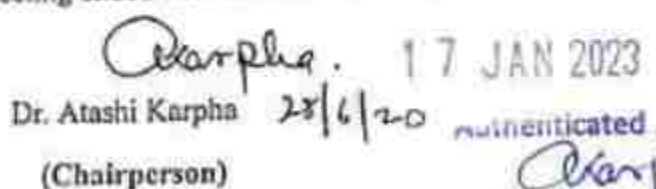 Akarpha. 17 JAN 2023
Dr. Atashi Karpha 28/6/20 Authenticated
(Chairperson)